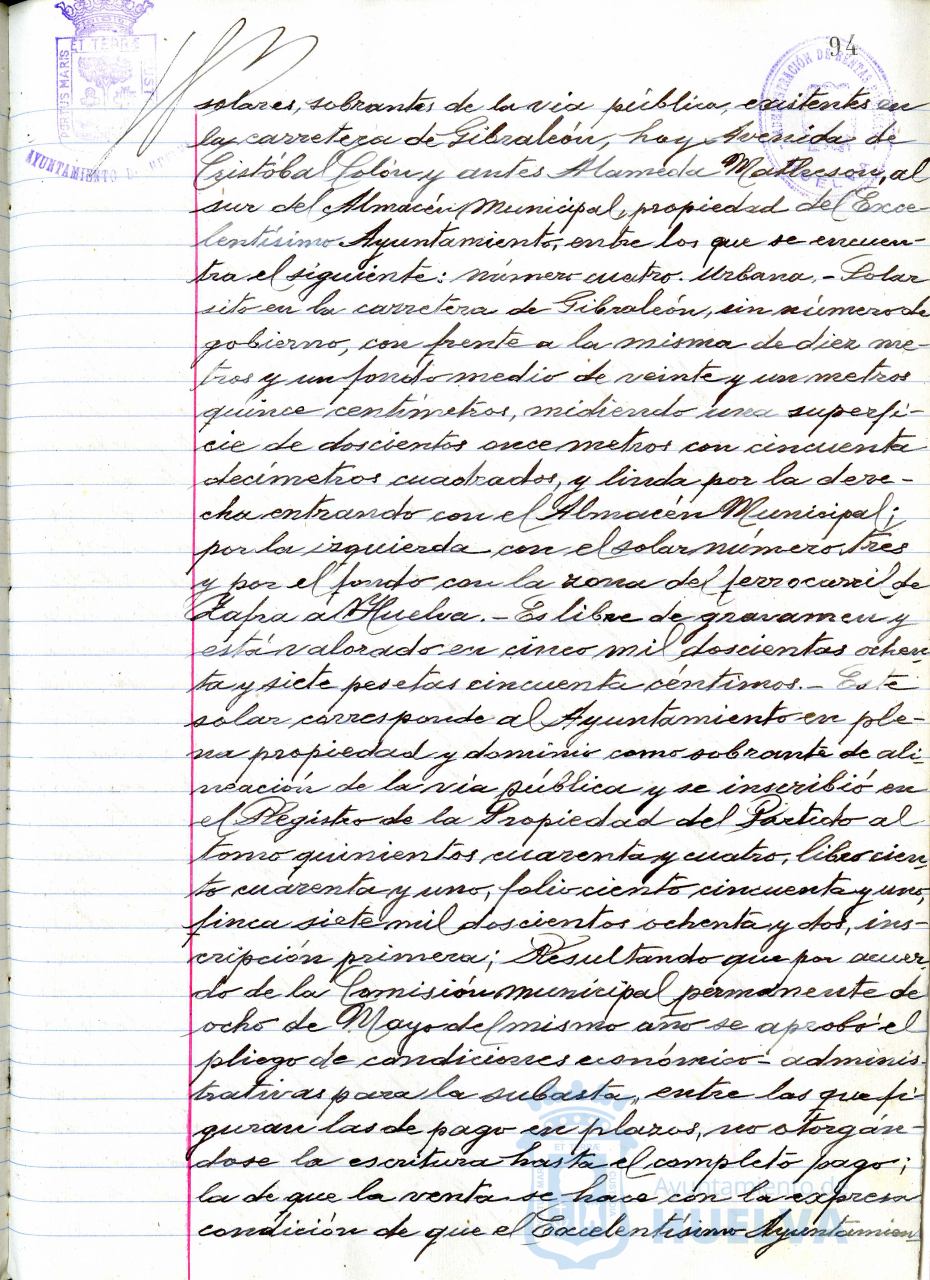 94
solares, sobrantes de la via pública, existentes en
la carretera de Gibraleón, hoy Avenida de
Cristóbal Colón y antes Alameda Matheson, al
sur del Almacén Municipal, propiedad del Exce-
lentísimo Ayuntamiento, entre los que se encuen-
tra el siguiente: número cuatro. Urbana.- Solar
sito en la carretera de Gibraleón, sin número de
gobierno, con frente a la misma de diez me-
tros y un fondo medio de veinte y un metros
quince centímetros, midiendo una superfi-
cie de doscientos once metros con cincuenta
decímetros cuadrados, y linda por la dere-
cha entrando con el Almacén Municipal;
por la izquierda con el solar número tres
y por el fondo con la zona del ferrocarril de
Zafra a Huelva.- Es libre de gravamen y
está valorado en cinco mil doscientas ochen-
ta y siete pesetas cincuenta céntimos.- Este
solar corresponde al Ayuntamiento en ple-
na propiedad y dominio como sobrante de ali-
neación de la via pública y se inscribió en
el Registro de la Propiedad del Partido al
tomo quinientos cuarenta y cuatro, libro cien-
to cuarenta y uno, folio ciento cincuenta y uno,
finca siete mil doscientos ochenta y dos, ins-
cripción primera; Resultando que por acuer-
do de la Comisión municipal permanente de
ocho de Mayo del mismo año se aprobó el
pliego de condiciones económico-adminis-
trativas para la subasta, entre las que fi-
guran las de pago en plazos, no otorgán-
dose la escritura hasta el completo pago;
la de que la venta se hace con la expresa
condición de que el Excelentísimo Ayuntamien-
PORTUS MARIS ET TERRE CUST
AYUNTAMIENTO DE
Ayuntamiento de
HUELVA